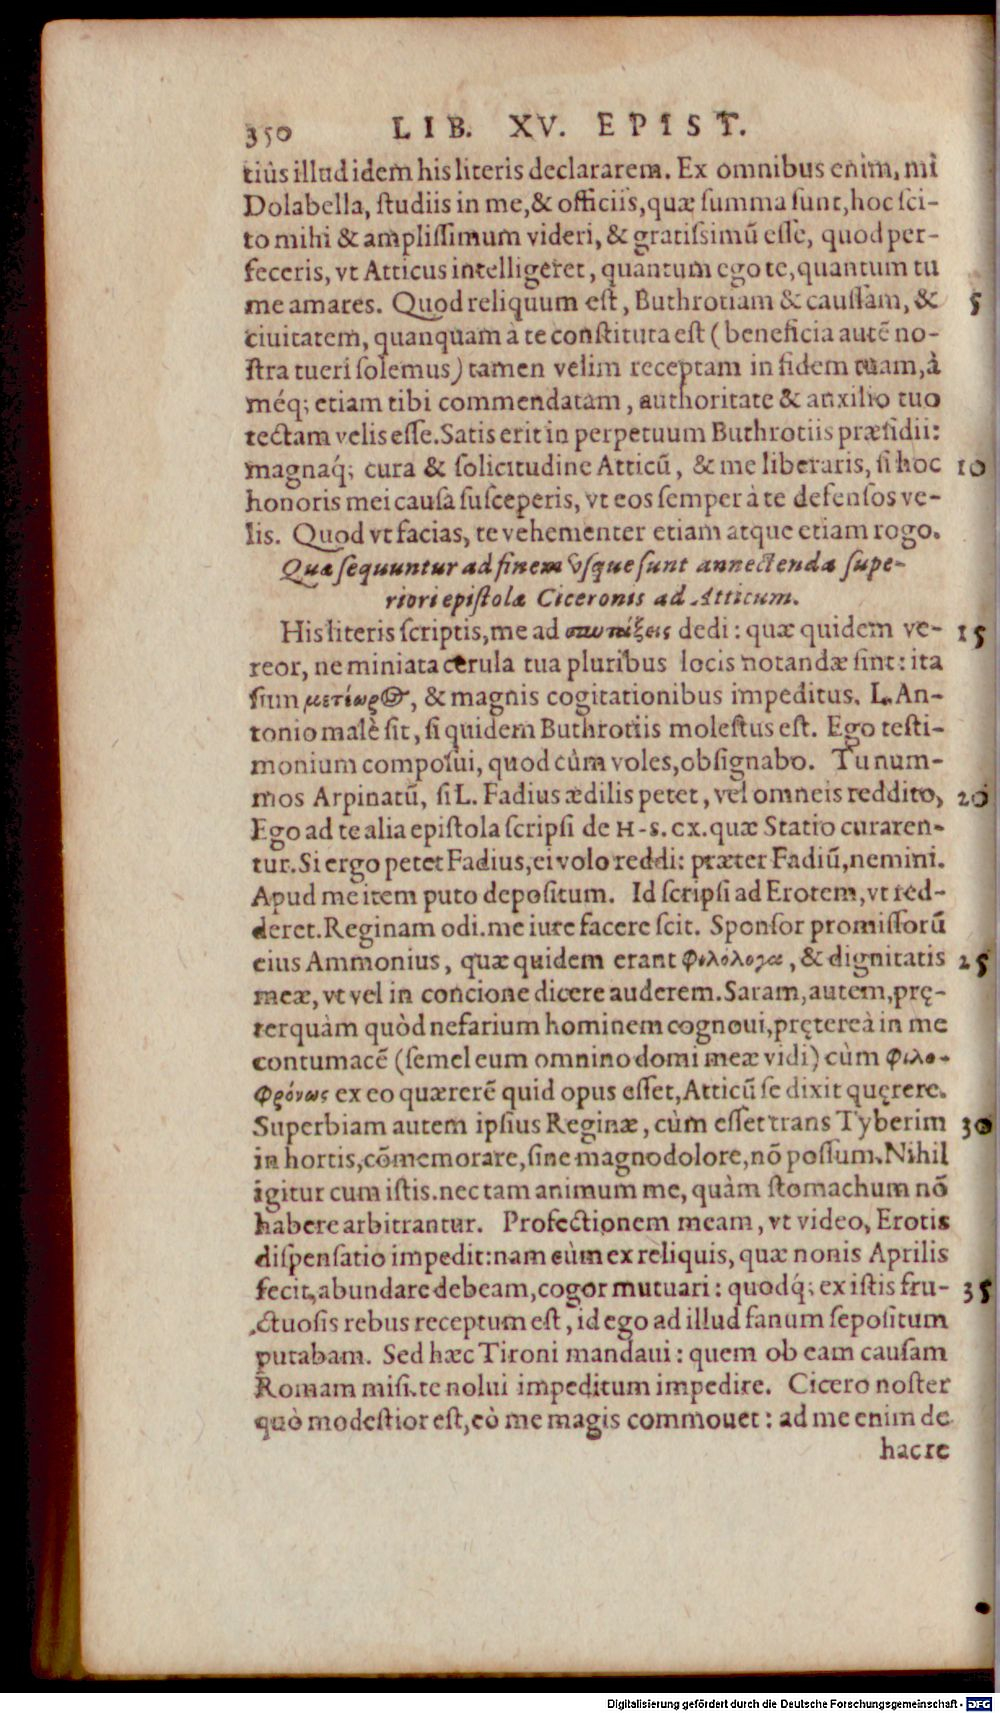 350 LIB. XV. EPIST.
tiùs illud idem his literis declararem. Ex omnibus enim, mi
Dolabella, studiis in me, & officiis, quæ summa sunt, hoc sci-
to mihi & amplissimum videri, & gratissimũ esse, quod per-
feceris, vt Atticus intelligeret, quantum ego te, quantum tu
me amares. Quod reliquum est, Buthrotiam & caussam, & 5
ciuitatem, quanquam à te constituta est (beneficia autẽ no-
stra tueri solemus) tamen velim receptam in fidem tuam, à
méq; etiam tibi commendatam, authoritate & auxilio tuo
tectam velis esse. Satis erit in perpetuum Buthrotiis præsidii:
magnaq́; cura & solicitudine Atticũ, & me liberaris, si hoc 10
honoris mei causa susceperis, vt eos semper à te defensos ve-
lis. Quod vt facias, te vehementer etiam atque etiam rogo.
Quæ sequuntur ad finem vsque sunt annectenda supe-
riori epistolæ Ciceronis ad Atticum.
His literis scriptis, me ad συντάξεις dedi: quæ quidem ve- 15
reor, ne miniata cerula tua pluribus locis notandæ sint: ita
sum μετέωρος, & magnis cogitationibus impeditus. L. An-
tonio malè sit, si quidem Buthrotiis molestus est. Ego testi-
monium composui, quod cùm voles, obsignabo. Tu num-
mos Arpinatũ, si L. Fadius ædilis petet, vel omneis reddito, 20
Ego ad te alia epistola scripsi de H-S. CX. quæ Statio curaren-
tur. Si ergo petet Fadius, ei volo reddi: præter Fadiũ, nemini.
Apud me item puto depositum. Id scripsi ad Erotem, vt red-
deret. Reginam odi. me iure facere scit. Sponsor promissorũ
eius Ammonius, quæ quidem erant φιλόλογα, & dignitatis 25
meæ, vt vel in concione dicere auderem. Saram, autem, prę-
terquàm quòd nefarium hominem cognoui, prętereà in me
contumacẽ (semel eum omnino domi meæ vidi) cùm φιλο-
φρόνως ex eo quærerẽ quid opus esset, Atticũ se dixit quęrere.
Superbiam autem ipsius Reginæ, cùm esset trans Tyberim 30
in hortis, cõmemorare, sine magno dolore, nõ possum. Nihil
igitur cum istis. nec tam animum me, quàm stomachum nõ
habere arbitrantur. Profectionem meam, vt video, Erotis
dispensatio impedit: nam cùm ex reliquis, quæ nonis Aprilis
fecit, abundare debeam, cogor mutuari: quodq́; ex istis fru- 35
ctuosis rebus receptum est, id ego ad illud fanum sepositum
putabam. Sed hæc Tironi mandaui: quem ob eam causam
Romam misi. te nolui impeditum impedire. Cicero noster
quò modestior est, eò me magis commouet: ad me enim de
hac re
Digitalisierung gefördert durch die Deutsche Forschungsgemeinschaft - DFG